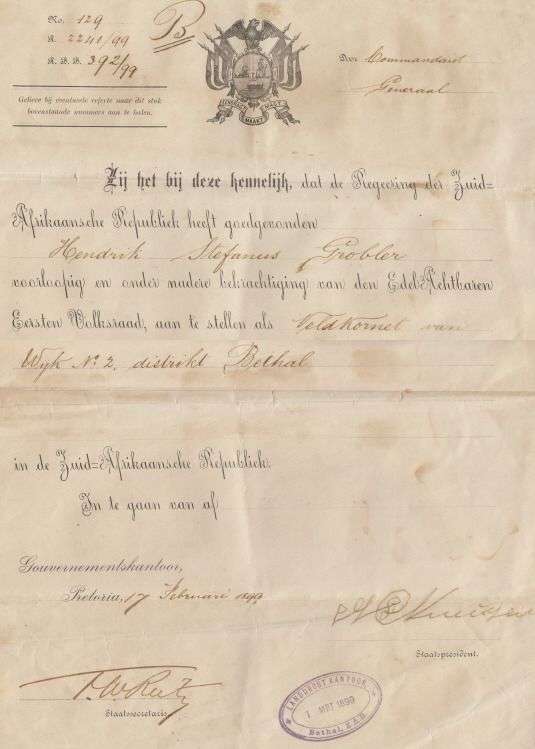 No. 129
R. 2241/99
R.B.B. 392/99
B
Gelieve bij eventueele referte naar dit stuk
bovenstaande nummers aan te halen.
EENDRAGT MAAKT MAGT
Commandant
Generaal
Zij het bij deze kennelijk, dat de Regeering der Zuid=
Afrikaansche Republiek heeft goedgevonden
Hendrik Stefanus Grobler
voorloopig en onder nadere bekrachtiging van den EdelAchtbaren
Eersten Volksraad, aan te stellen als Veldkornet van
Wyk No 2, distrikt Bethal
in de Zuid=Afrikaansche Republiek.
In te gaan van af
Gouvernementskantoor,
Pretoria, 17 Februari 1899
Staatspresident.
Staatssecretaris
LANDDROST KANTOOR
1 MRT 1899
Bethal, Z.A.R.